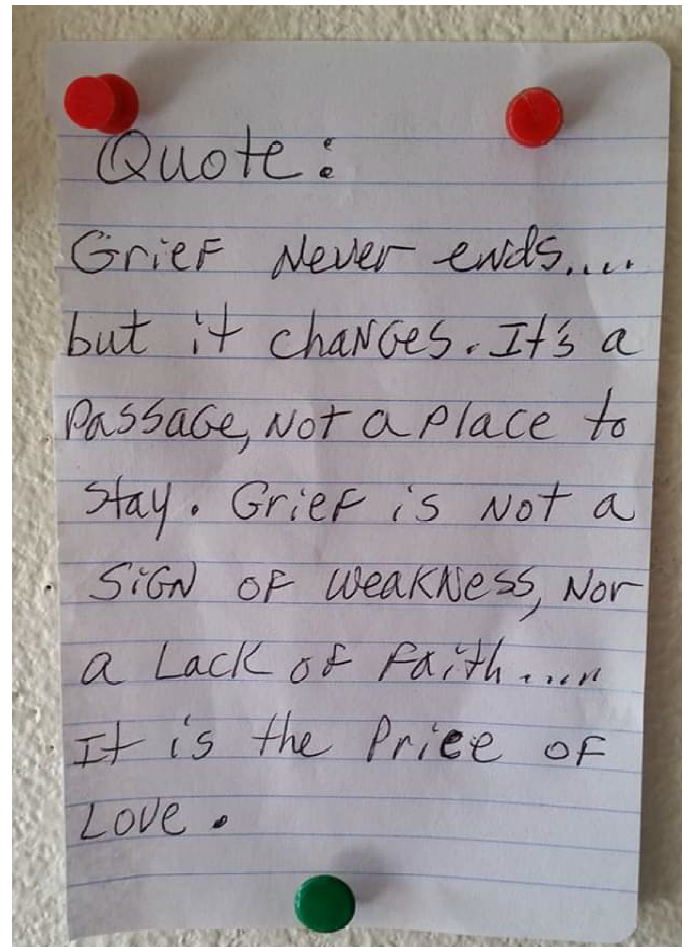 Quote:
Grief Never ends....
but it chaNGes. It's a
Passage, Not a Place to
stay. Grief is Not a
SiGN of weakNess, Nor
a Lack of Faith....
It is the Price of
Love.